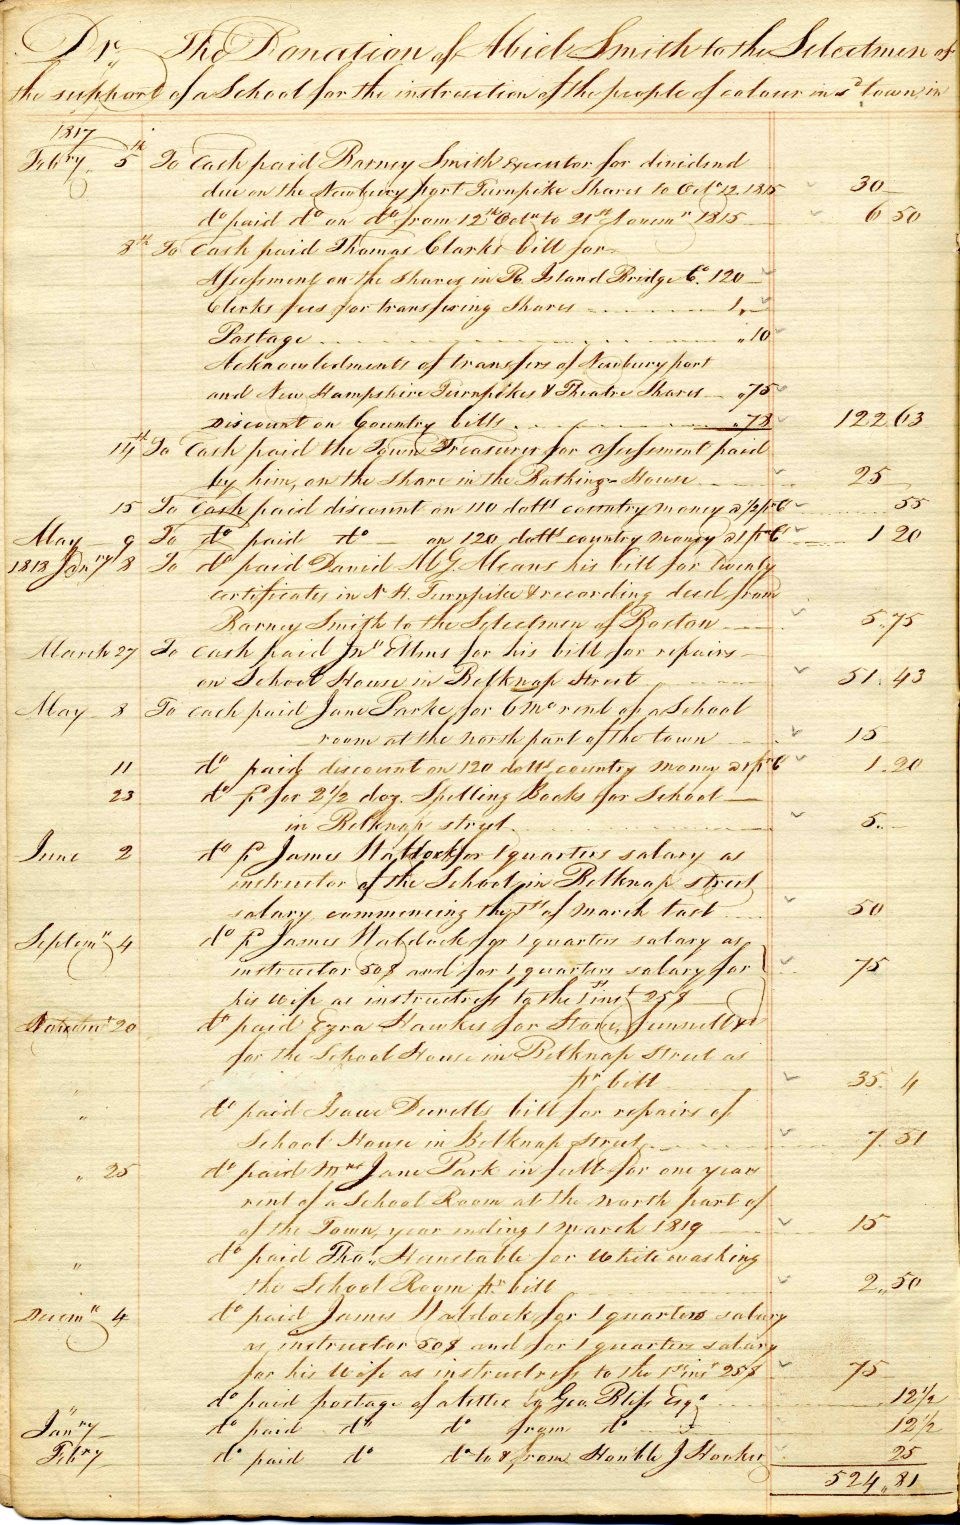 Dr. The Donation of Abiel Smith to the Selectmen of
the support of a School for the instruction of the people of colour in sd town in
1817
Febry. 5th To Cash paid Barney Smith Executor for dividend
due on the Newbury port Turnpike Shares to Octr 12. 1815 30
do paid do on do from 12th Octr to 21st Novemr 1815 6 50
8th To Cash paid Thomas Clarks bill for
Assessment on the shares in R. Island Bridge Co. 120
Clerks fees for transfering Shares 1,
Postage " 10
Acknowledments of transfers of Newbury port
and New Hampshire Turnpikes & Theatre Shares " 75
Discount on Country bills " 78 122 63
14th To Cash paid the Town Treasurer for assessment paid
by him, on the share in the Bathing-House 25
15 To Cash paid discount on 110 dolls country money a ½ pr Ct 55
May 9 To do paid do on 120 dolls country money a 1 pr Ct 1 20
1818 Janry 8 To do paid David McG. Means his bill for Twenty
certificates in N.H. Turnpike & recording deed from
Barney Smith to the Selectmen of Boston 5. 75
March 27 To cash paid Jno Ellms for his bill for repairs
on School House in Belknap Street 51. 43
May 8 To cash paid Jane Parke for 6 mo rent of a School
room at the north part of the town 15
11 do paid discount on 120 dolls country money a 1 pr Ct 1. 20
23 do pd for 2½ doz. Spelling Books for School
in Belknap street 5.
June 2 do pd James Waldock for 1 quarters salary as
instructor of the School in Belknap street
salary commencing the 1st of March last 50
Septemr 4 do pd James Waldock for 1 quarters salary as
instructor 50$ and for 1 quarters salary for
his wife as instructress to the 1st inst 25$ 75
20 do paid Ezra Hawkes for Stove, Funnell &c
for the School House in Belknap Street as
pr bill 35. 4
" do paid Isaac bill for repairs of
School House in Belknap Street 7. 51
" 25 do paid Mrs Jane Park in full for one years
rent of a School Room at the north part of
of the Town, year ending 1 March 1819 15
" do paid Thos. Hunstable for White washing
the School Room pr bill 2,, 50
Decemr 4 do paid James Waldock for 1 quarters salary
as instructor 50$ and for 1 quarters salary
for his Wife as instructress to the 1st inst 25$ 75
do paid postage of a letter by Geo. Bliss Esqr 12½
Janry do paid do do from do 12½
Febry do paid do do to & from Honble J Hooker 25
524,, 81